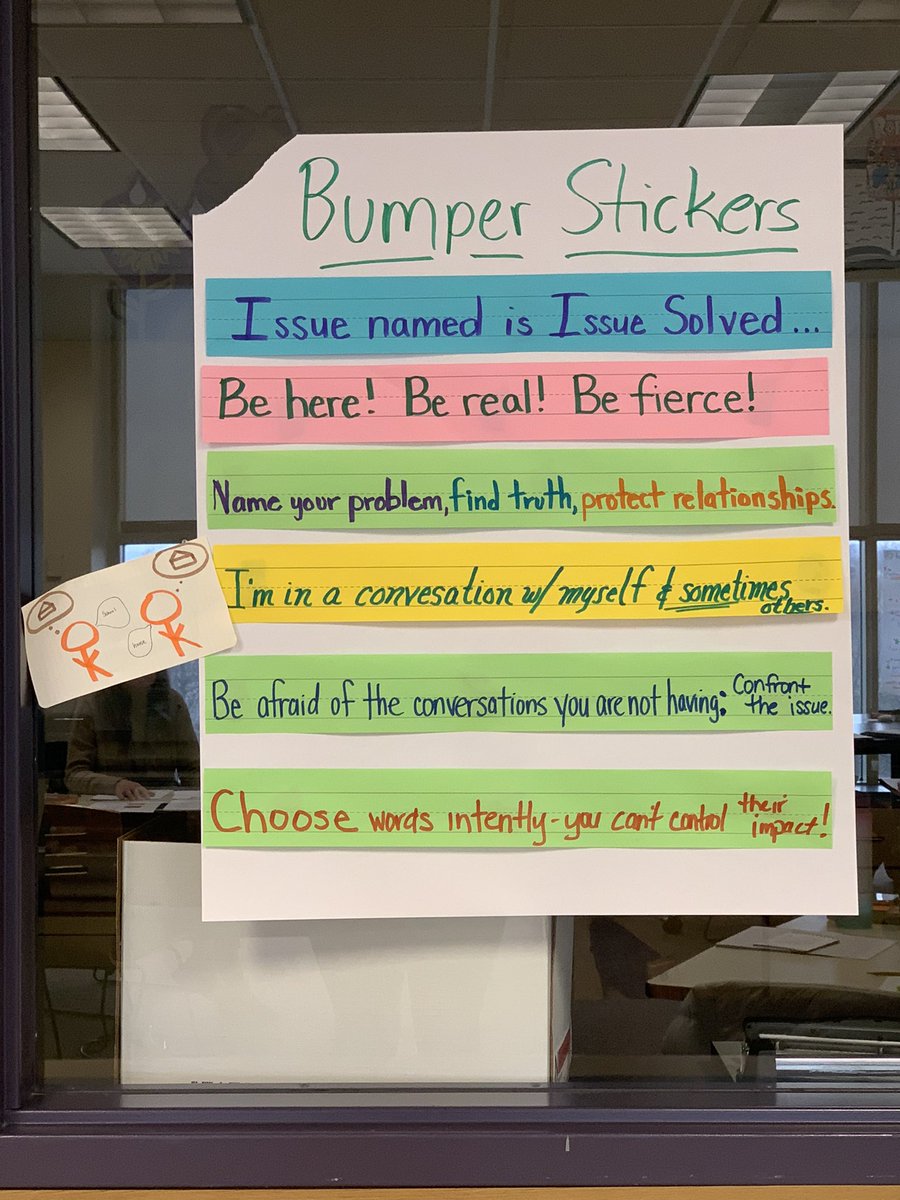 Bumper Stickers
Issue named is Issue Solved...
Be here! Be real! Be fierce!
Name your problem, find truth, protect relationships.
I'm in a convesation w/ myself & sometimes
others.
school
home
Be afraid of the conversations you are not having: Confront
the issue.
Choose words intently - you can't control their
impact!